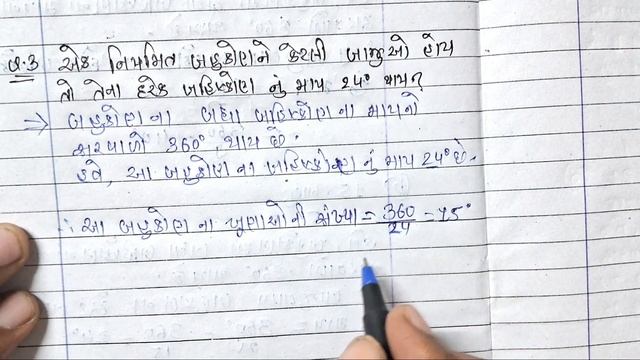 પ્ર.3 એક નિયમિત બહુકોણને કેટલી બાજુઓ હોય
તો તેના દરેક બહિષ્કોણ નું માપ 24° થાય?
⇒ બહુકોણના બધા બહિષ્કોણના માપનો
સરવાળો 360° થાય છે.
હવે, આ બહુકોણ ના બહિષ્કોણ નું માપ 24° છે.
∴ આ બહુકોણ ના ખુણાઓની સંખ્યા = 360/24 = 15°